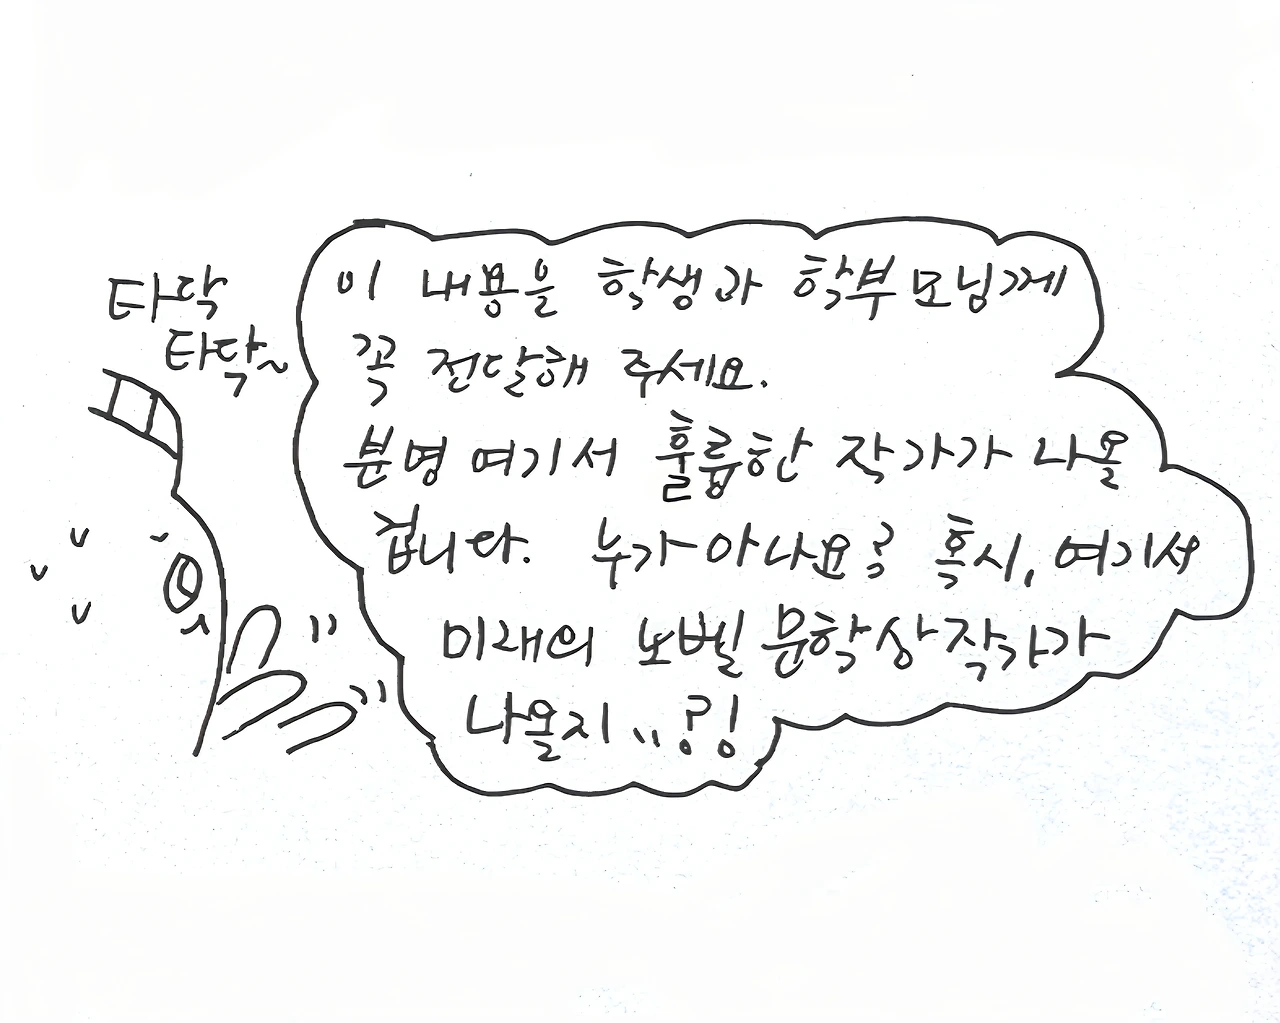 타닥
타닥~
이 내용을 학생과 학부모님께
꼭 전달해 주세요.
분명 여기서 훌륭한 작가가 나올
겁니다. 누가아나요? 혹시, 여기서
미래의 노벨 문학상작가가
나올지..?!